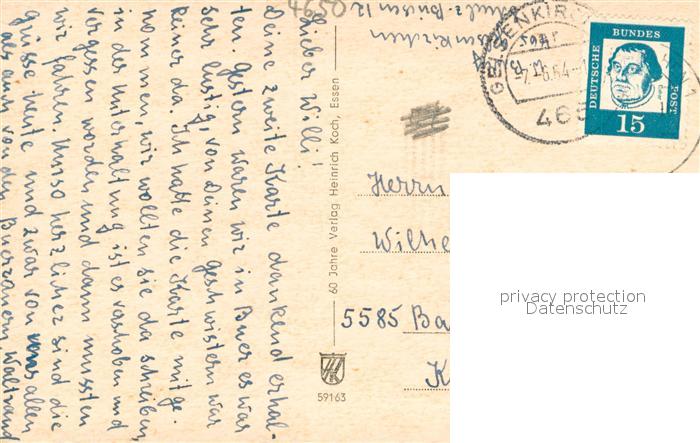 4650
Gelsenkirchen
GELSENKIRCHEN
465
DEUTSCHE BUNDESPOST
15
Lieber Willi!
Deine zweite Karte dankend erhal-
ten. Gestern waren wir in Buer es war
sehr lustig, von Deinen Geschwistern war
keiner da. Ich hatte die Karte mitge-
nommen, wir wollten sie da schreiben,
in der Unterhaltung ist es verschoben und
vergessen worden und dann mussten
wir fahren. Umso herzlicher sind die
Grüsse heute und zwar von uns allen
als auch von den Buerranern Waltraud
60 Jahre Verlag Heinrich Koch, Essen
HK
59163
Herrn
Wilhe
5585 Ba
K
privacy protection
Datenschutz